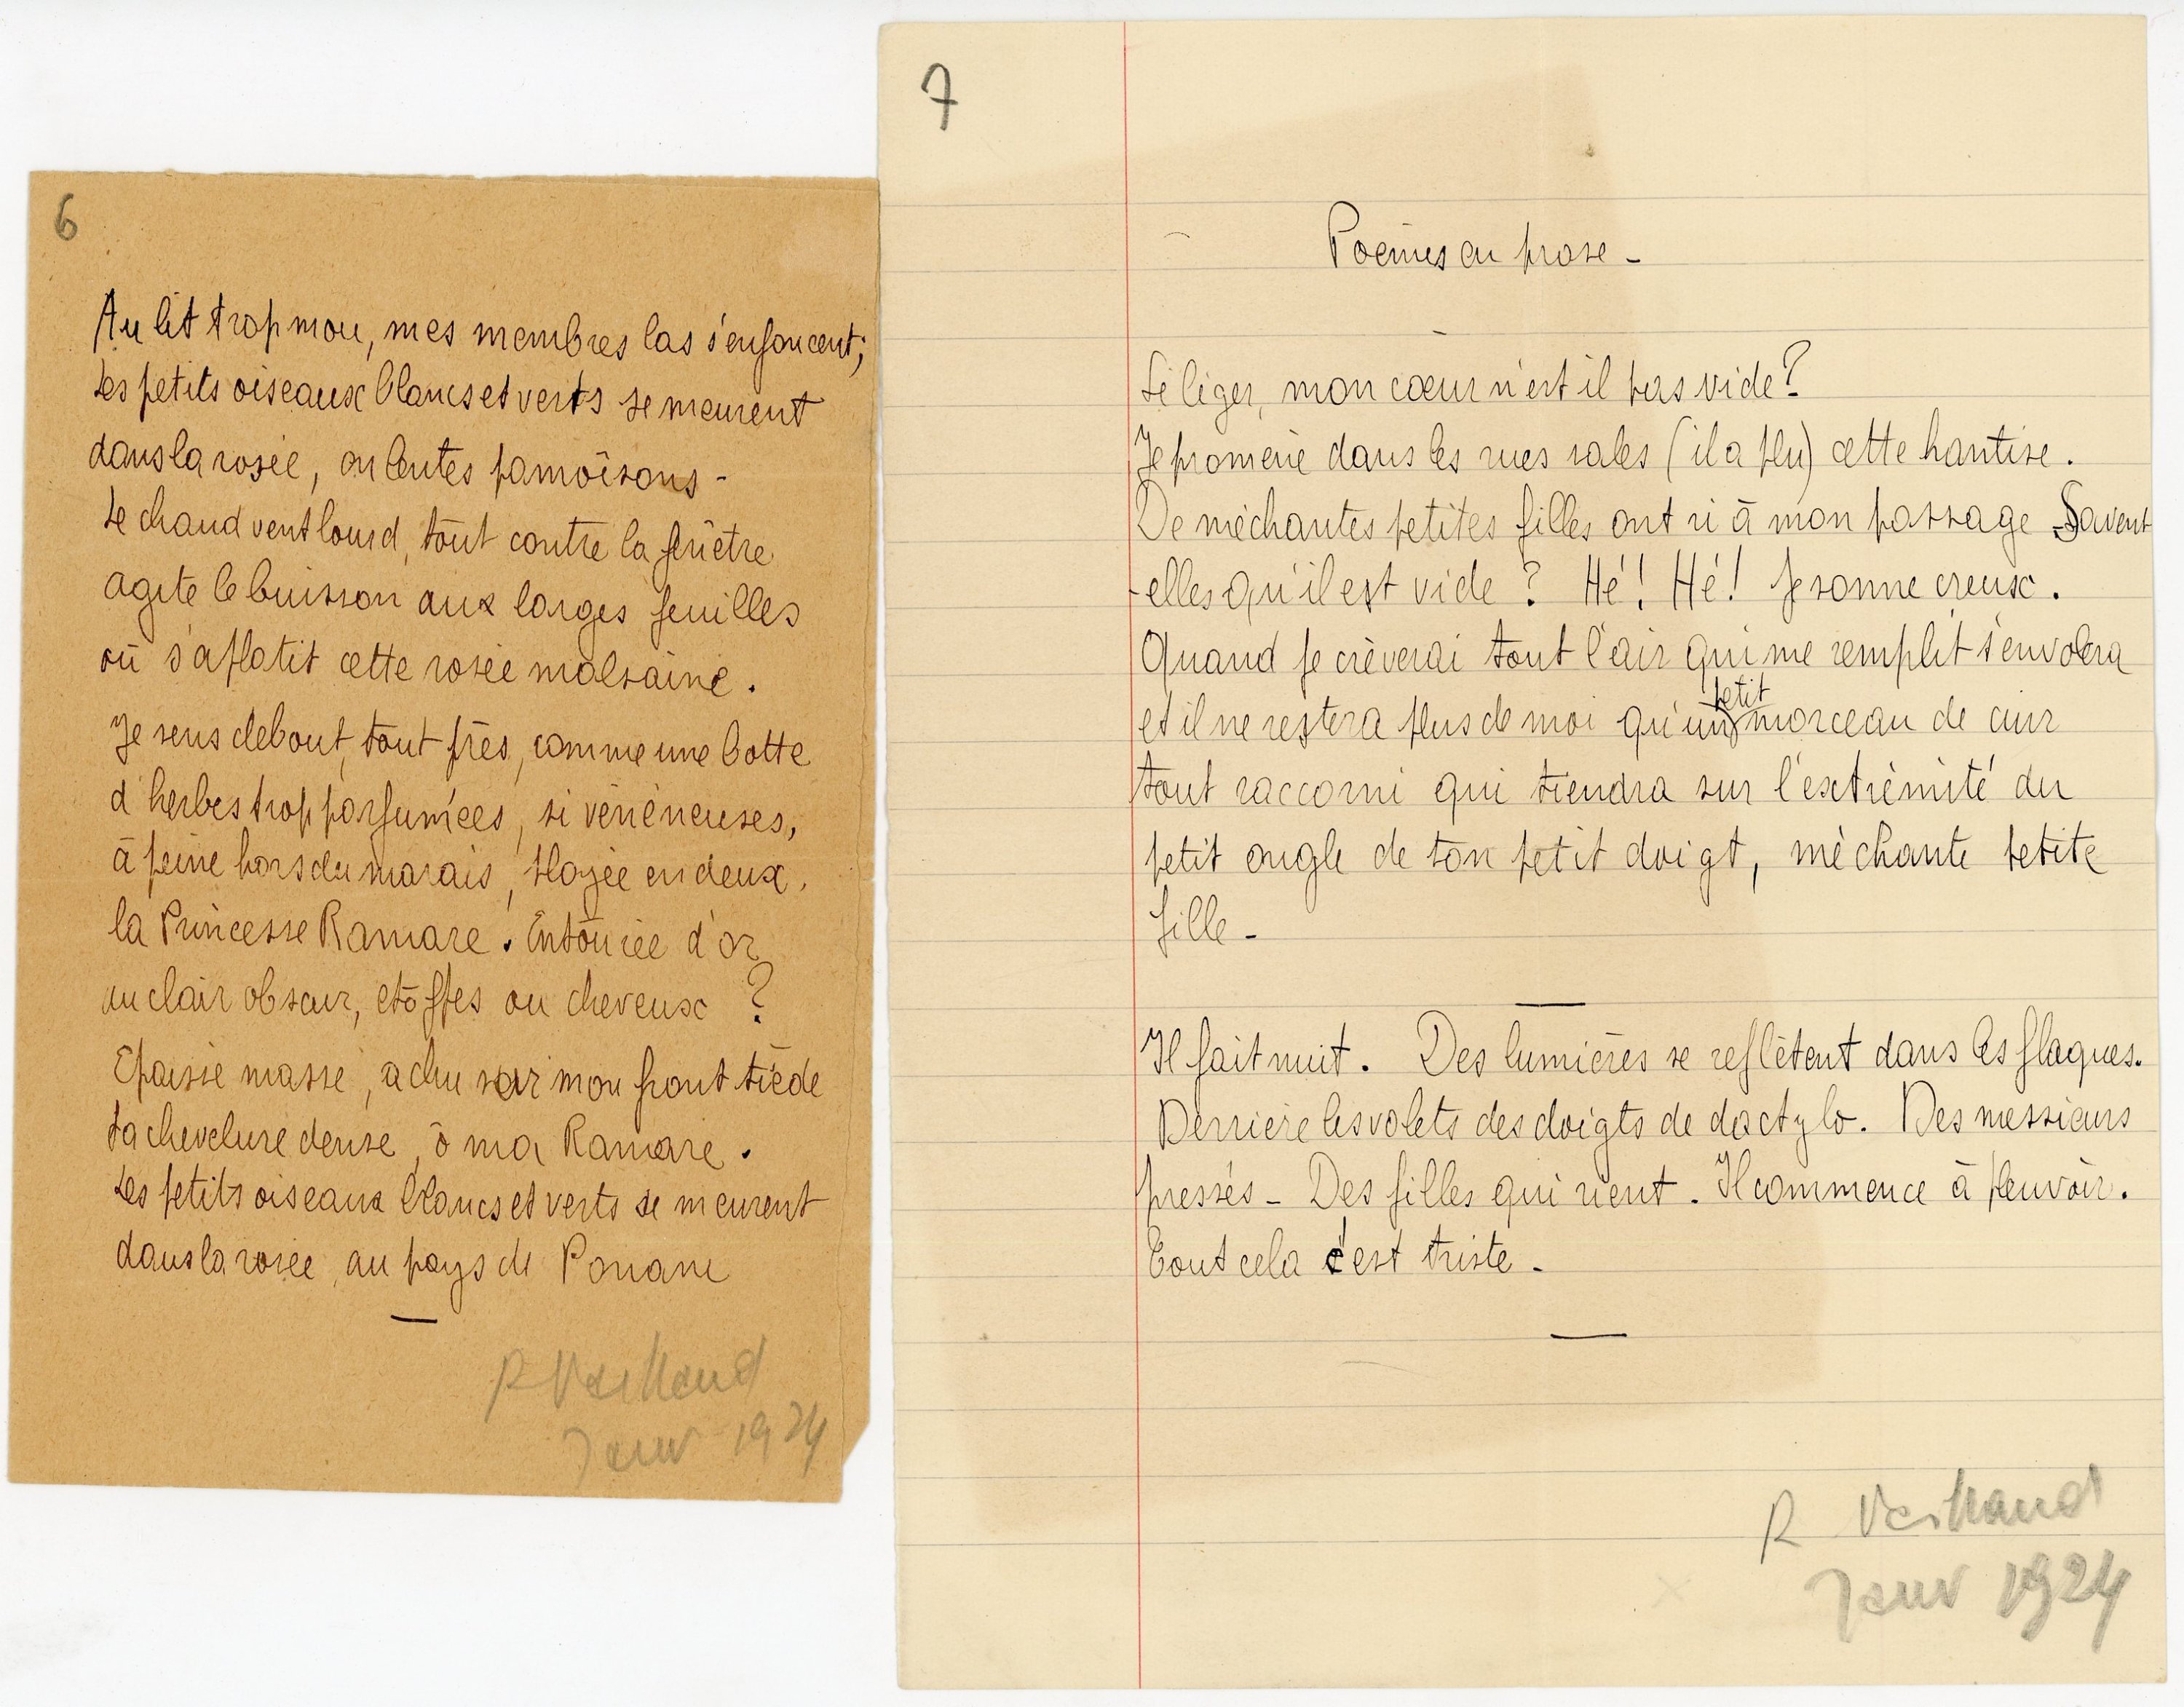 6
Au lit trop mou, mes membres las s'enfoncent;
Les petits oiseaux blancs et verts se meurent
dans la rosée, en lentes pamoisons -
Le chaud vent lourd, tout contre la fenêtre
agite le buisson aux larges feuilles
où s'aplatit cette rosée malsaine.
Je sens debout, tout près, comme une botte
d'herbes trop parfumées, si vénéneuses,
à peine hors du marais, ployée en deux,
la Princesse Ramare. Entourée d'or
au clair obscur, etoffes ou cheveux ?
Epaisse masse, a chu sur mon front tiède
ta chevelure dense, ô ma Ramare.
Les petits oiseaux blancs et verts se meurent
dans la rosée, au pays de
R Vailland
Janv 1924
7
Poèmes en prose -
Si léger, mon cœur n'est il pas vide ?
Je promène dans les rues sales (il a plu) cette hantise.
De méchantes petites filles ont ri à mon passage. Savent
-elles qu'il est vide ? Hé ! Hé ! Je sonne creux.
Quand je crèverai tout l'air qui me remplit s'envolera
et il ne restera plus de moi qu'un petit morceau de cuir
tout raccorni qui tiendra sur l'extrémité du
petit ongle de ton petit doigt, méchante petite
fille -
Il fait nuit. Des lumières se reflètent dans les flaques.
Derrière les volets des doigts de dactylo. Des messieurs
pressés - Des filles qui rient. Il commence à pleuvoir.
Tout cela c'est triste -
R Vailland
Janv 1924